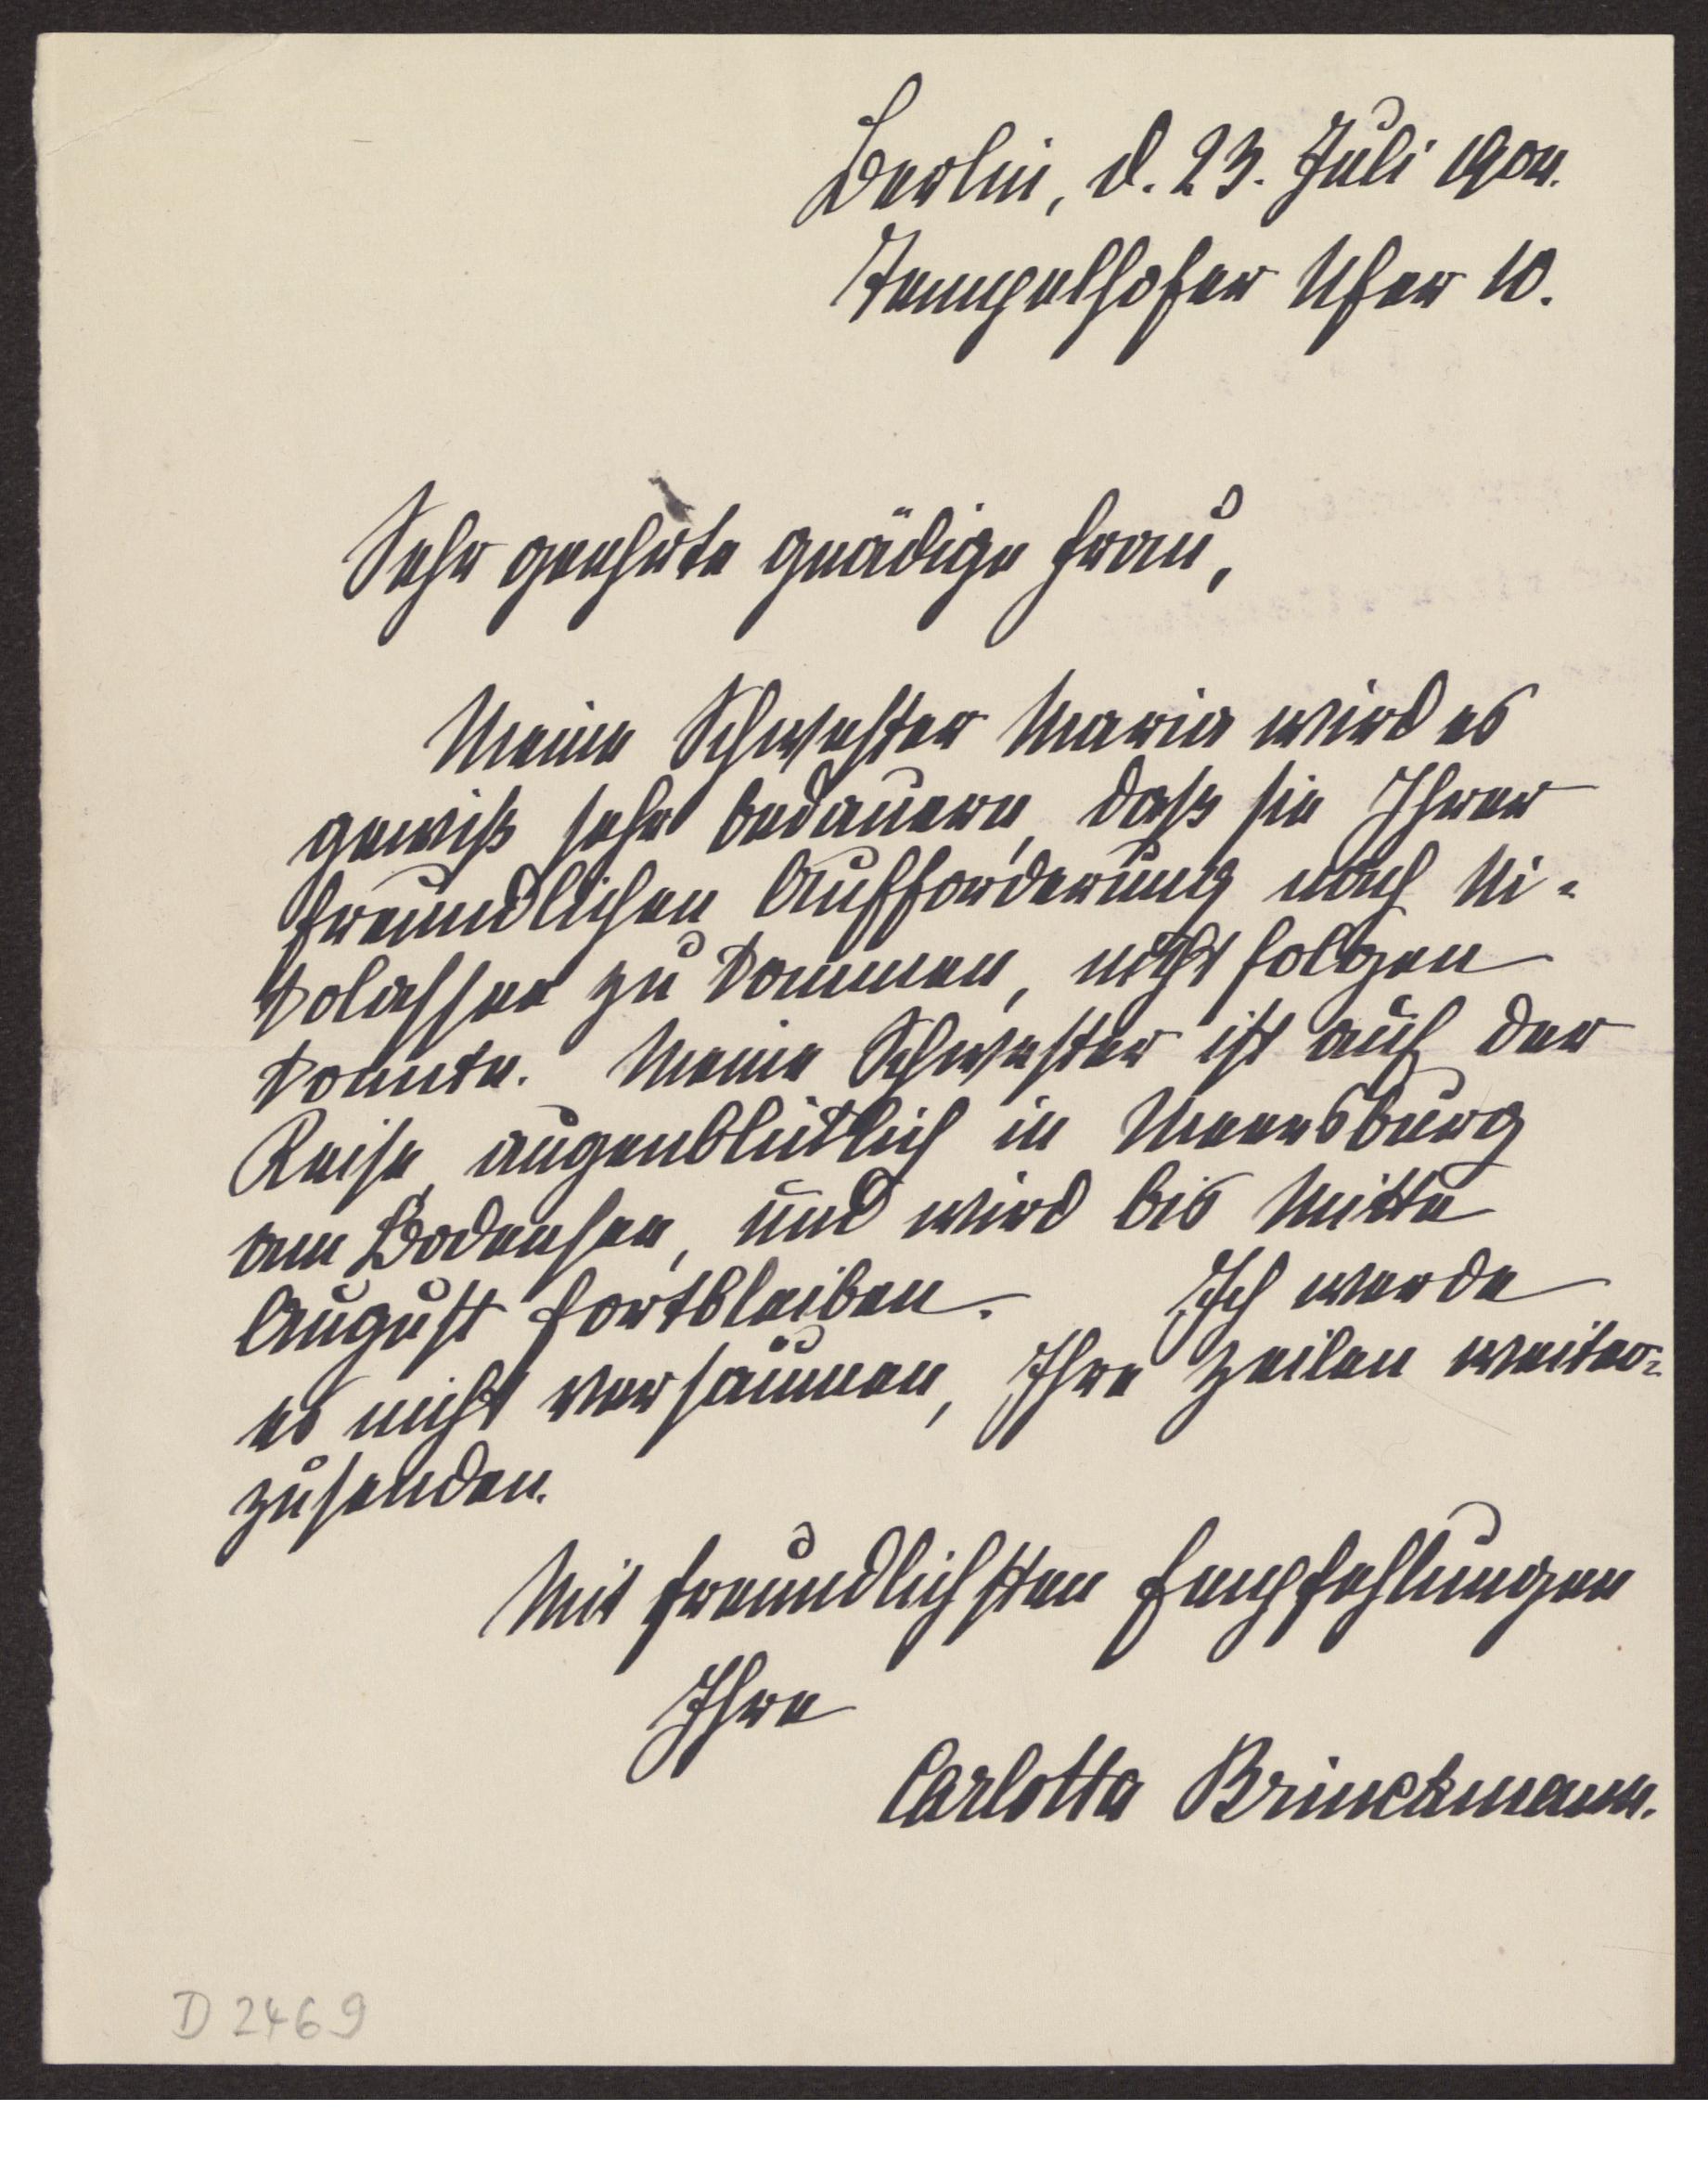 Berlin, d. 23. Juli 1904.
Tempelhofer Ufer 10.
Sehr geehrte gnädige Frau,
Meine Schwester Maria wird es
gewiß sehr bedauern, daß sie Ihrer
freundlichen Aufforderung nach Ni-
kolassee zu kommen, nicht folgen
konnte. Meine Schwester ist auf der
Reise, augenblicklich in Meersburg
am Bodensee, und wird bis Mitte
August fortbleiben. Ich werde
es nicht versäumen, Ihre Zeilen weiter-
zusenden.
Mit freundlichsten Empfehlungen
Ihre
Carlotta Brinckmann.
D 2469